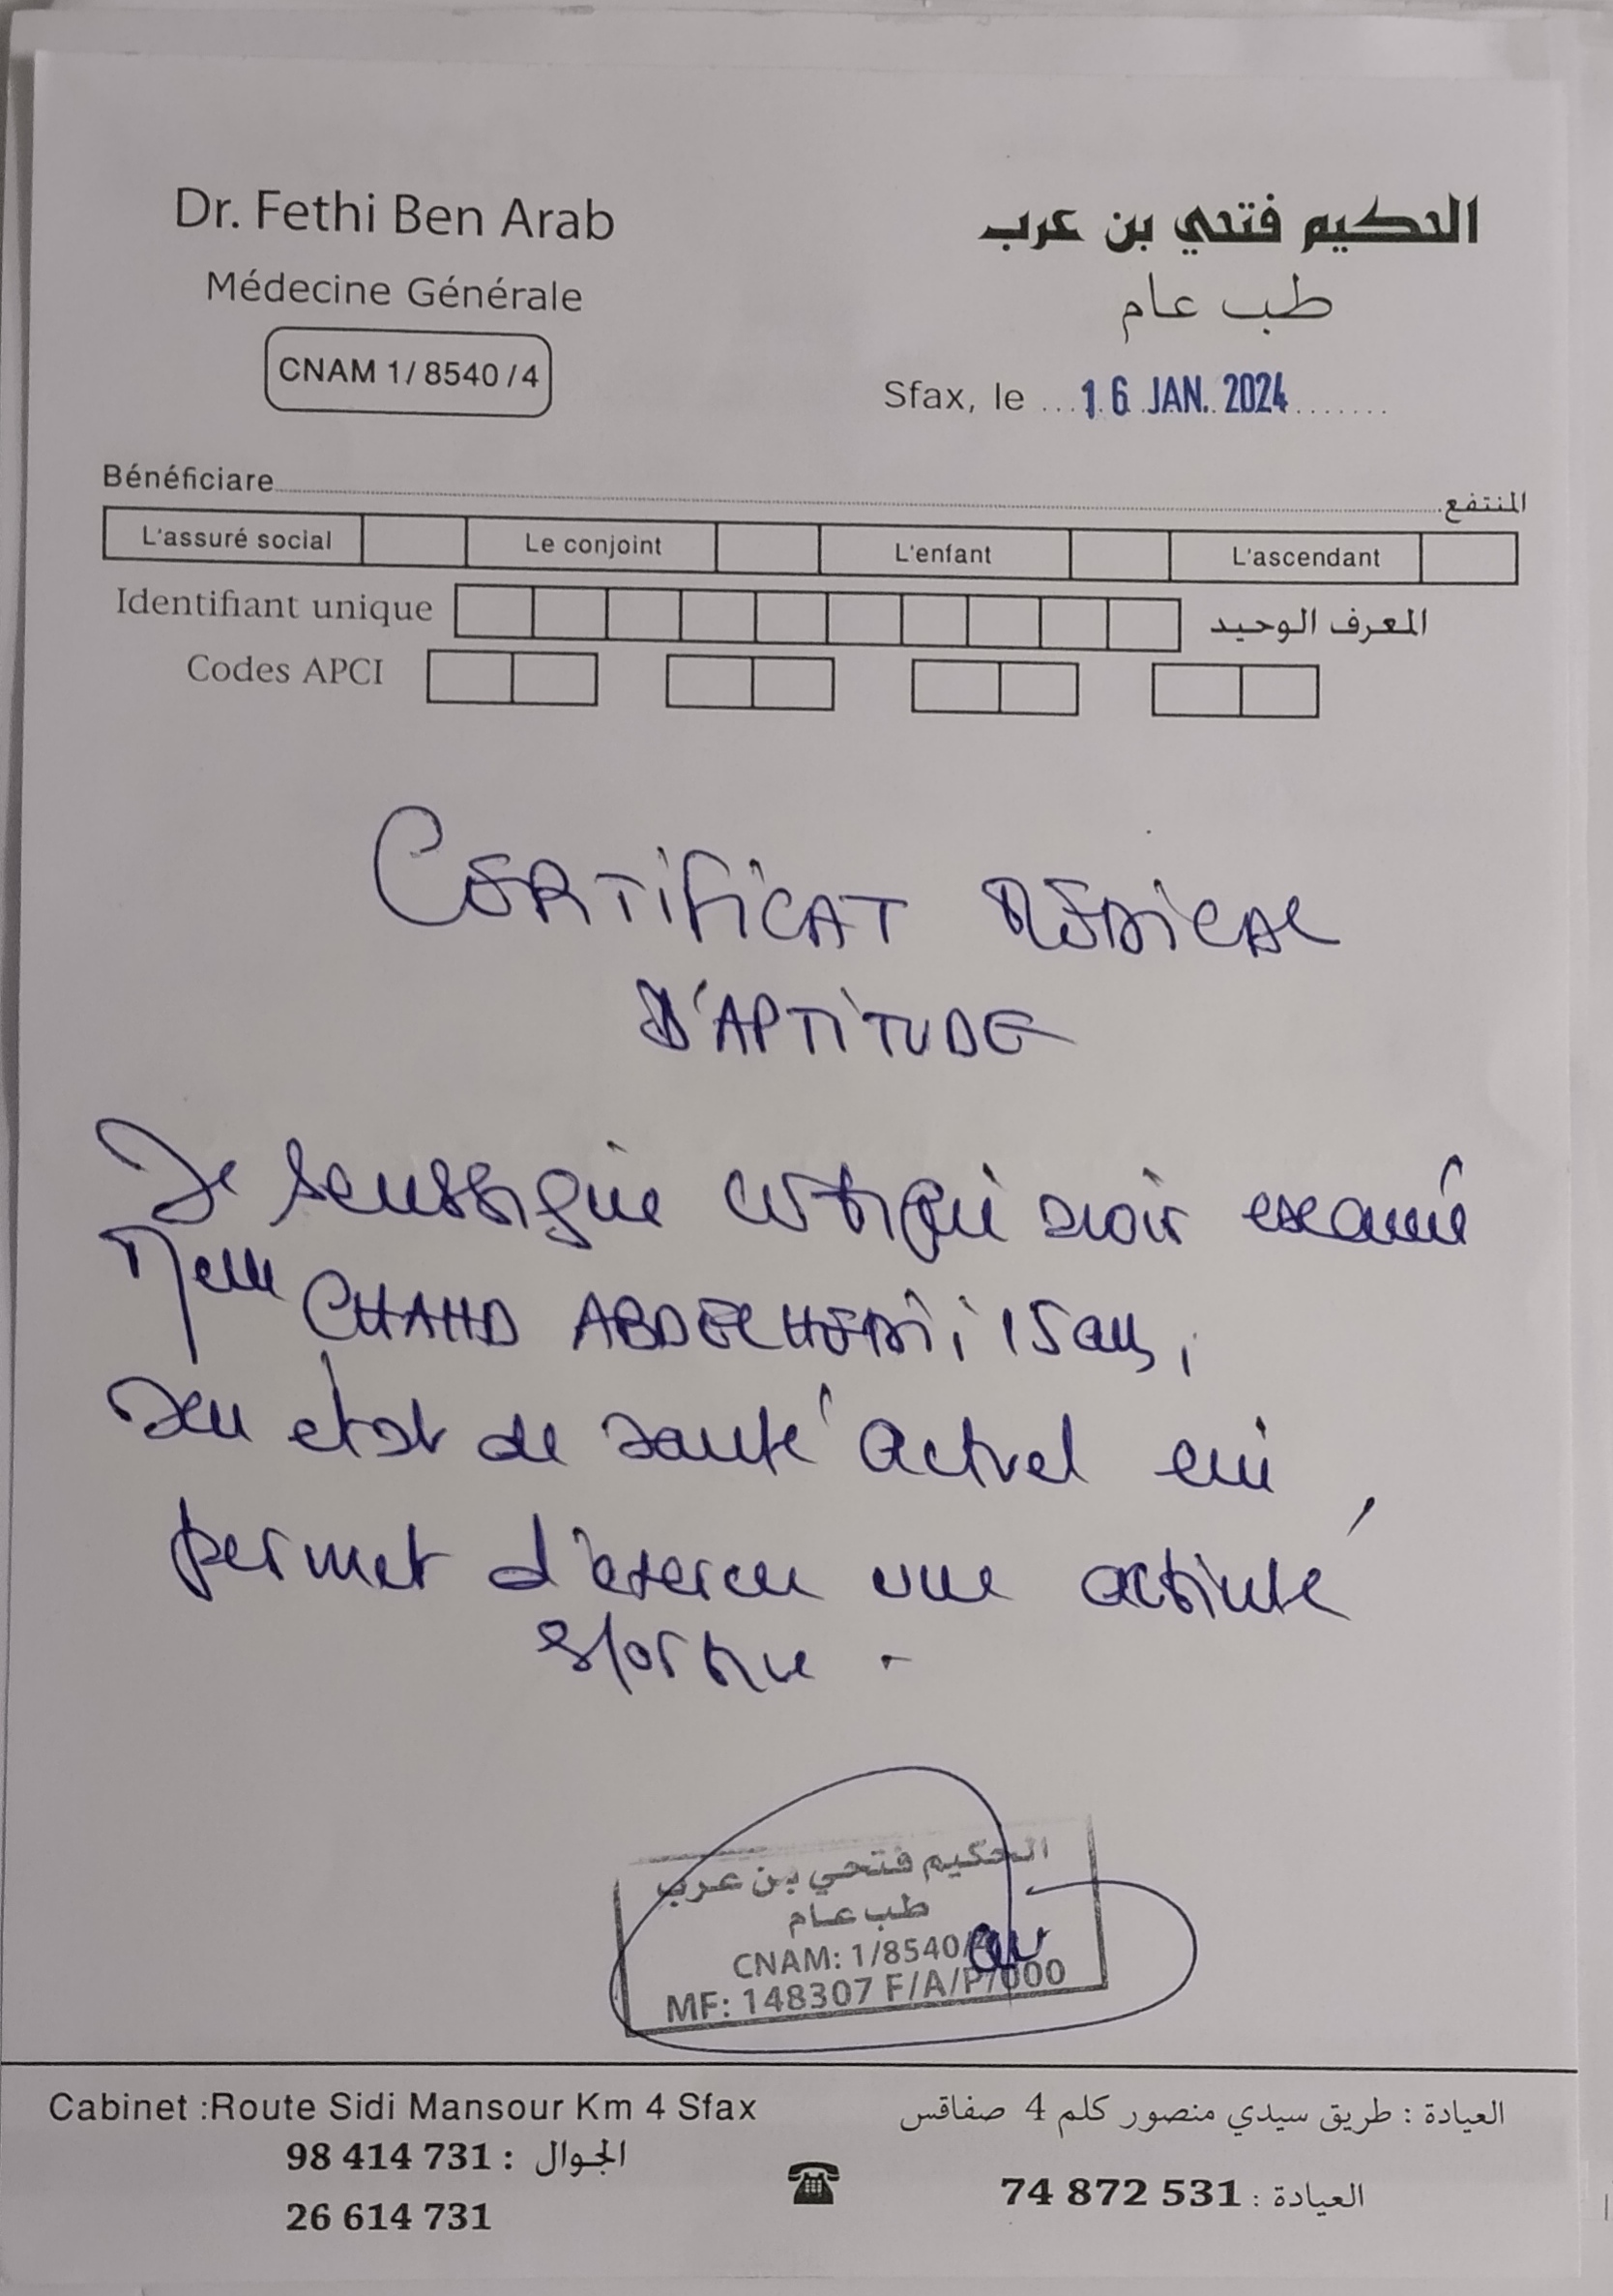 Dr. Fethi Ben Arab
الحكيم فتحي بن عرب
Médecine Générale
طب عام
CNAM 1/ 8540 /4
Sfax, le ...16 JAN. 2024.......
Bénéficiare
المنتفع
L'assuré social
Le conjoint
L'enfant
L'ascendant
Identifiant unique
المعرف الوحيد
Codes APCI
CERTIFICAT MÉDICAL
D'APTITUDE
Je soussigné certifié avoir examiné
Melle CHAHD ABDELHEDI, 15 ans,
son état de santé actuel lui
permet d'exercer une activité
sportive.
الحكيم فتحي بن عرب
طب عام
CNAM: 1/8540/4
MF: 148307 F/A/P/000
Cabinet :Route Sidi Mansour Km 4 Sfax
العيادة : طريق سيدي منصور كلم 4 صفاقس
الجوال : 98 414 731
26 614 731
العيادة : 74 872 531